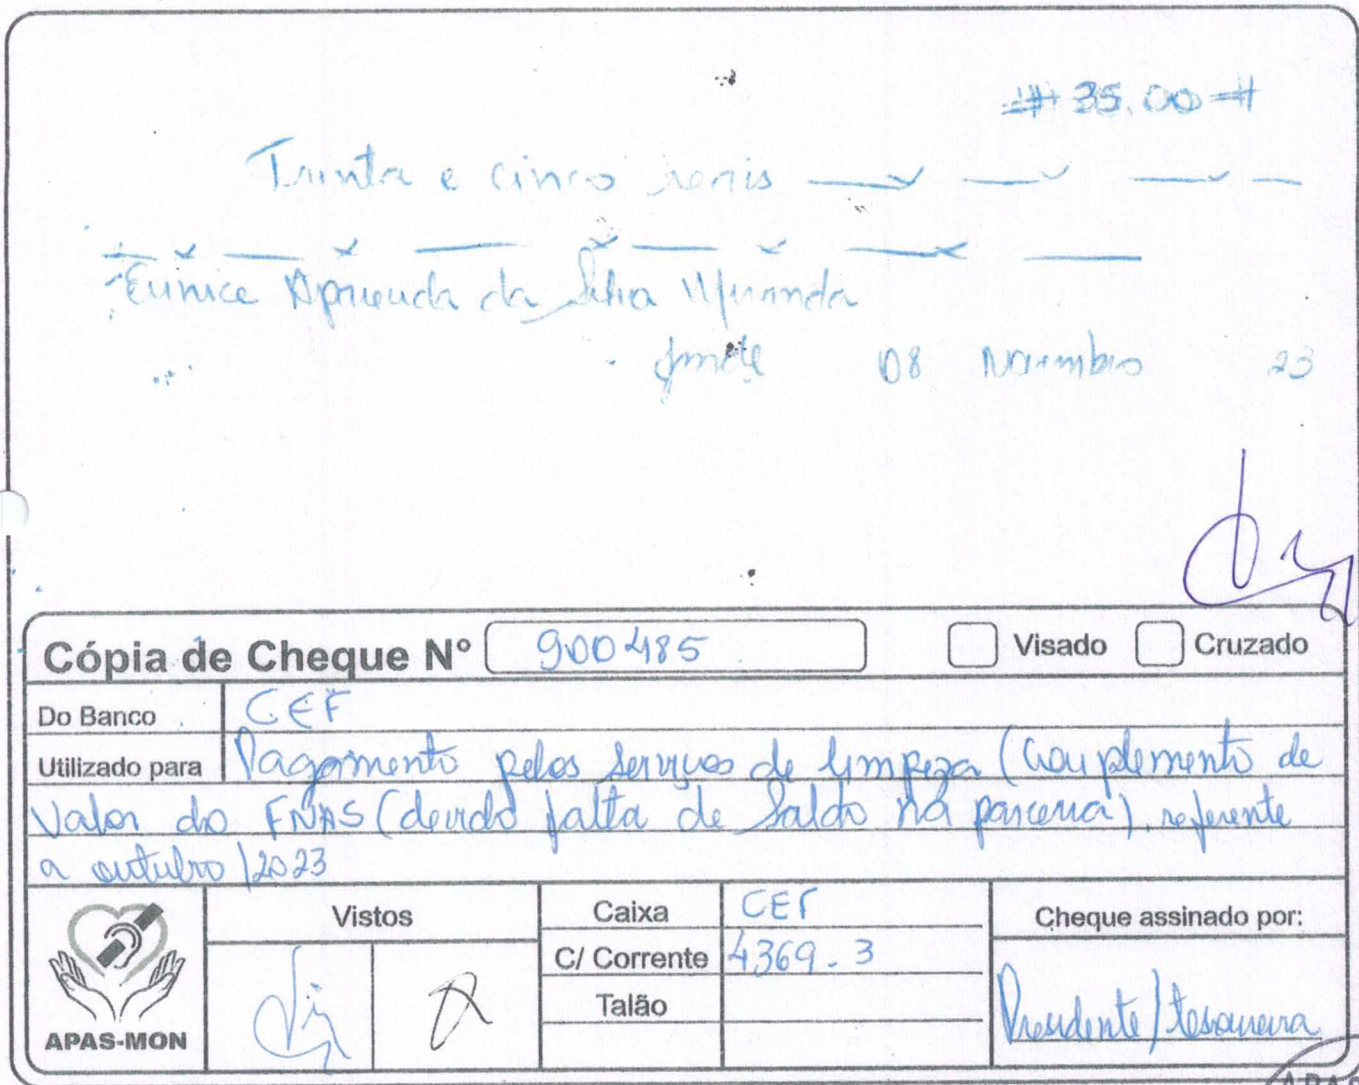 # 35,00 #
Trinta e cinco reais
Eunice Aparecida da Silva Miranda
08 Novembro 23
Cópia de Cheque Nº 900485 Visado Cruzado
Do Banco CEF
Utilizado para Pagamento pelos serviços de limpeza (Complemento de
Valor do FNAS (devido falta de Saldo na parceria), referente
a outubro/2023
Vistos Caixa CEF Cheque assinado por:
C/ Corrente 4369-3
Talão
Presidente/tesoureira
APAS-MON